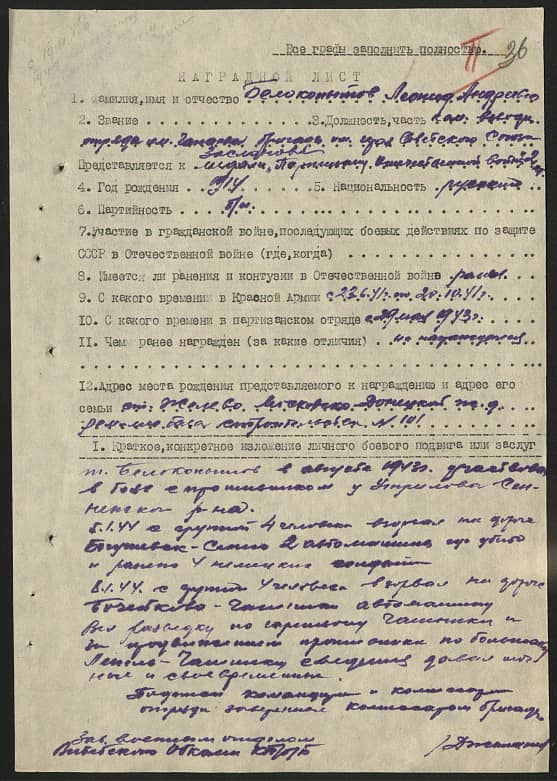 Все графы заполнить полностью.
П 36
НАГРАДНОЙ ЛИСТ
1. Фамилия,имя и отчество Белокопытов Леонид Андреевич
2. Звание 3.Должность,часть ком. взвода
отряда им. бригады им. героя Советского Союза
Заслонова
Представляется к медали „Партизану Отечественной войны" 2
4. Год рождения 1914 5. Национальность русский
6. Партийность б/п
7.Участие в гражданской войне,последующих боевых действиях по защите
СССР в Отечественной войне (где,когда)
8. Имеется ли ранения и контузии в Отечественной войне ранен
9. С какого времени в Красной Армии с 23.6.41г. по 20.10.41г.
10. С какого времени в партизанском отряде с 29 мая 1943г.
11. Чем ранее награжден (за какие отличия) не награждался
12.Адрес места рождения представляемого к награждению и адрес его
семьи ст. Московско-Донецкой ж.д.
N 101
I. Краткое,конкретное изложение личного боевого подвига или заслуг
т. Белокопытов в августе 1943г. участвовал
в бою с противником у Сен-
ненского р-на.
5.1.44 с группой 4 человека взорвал на дороге
Богушевск-Сенно 2 автомашины где убито
и ранено 4 немецких солдат
8.1.44. с группой 4 человека взорвал на дороге
Бочейково-Чашники автомашину
Вел разведку по гарнизону Чашники и
за продвижением противника по большаку
Лепель-Чашники сведения давал точ-
ные и своевременные.
Подписал командир и комиссар
отряда заверено комиссаром бригады
Зав. военным отделом
Витебского Обкома КП/б/Б